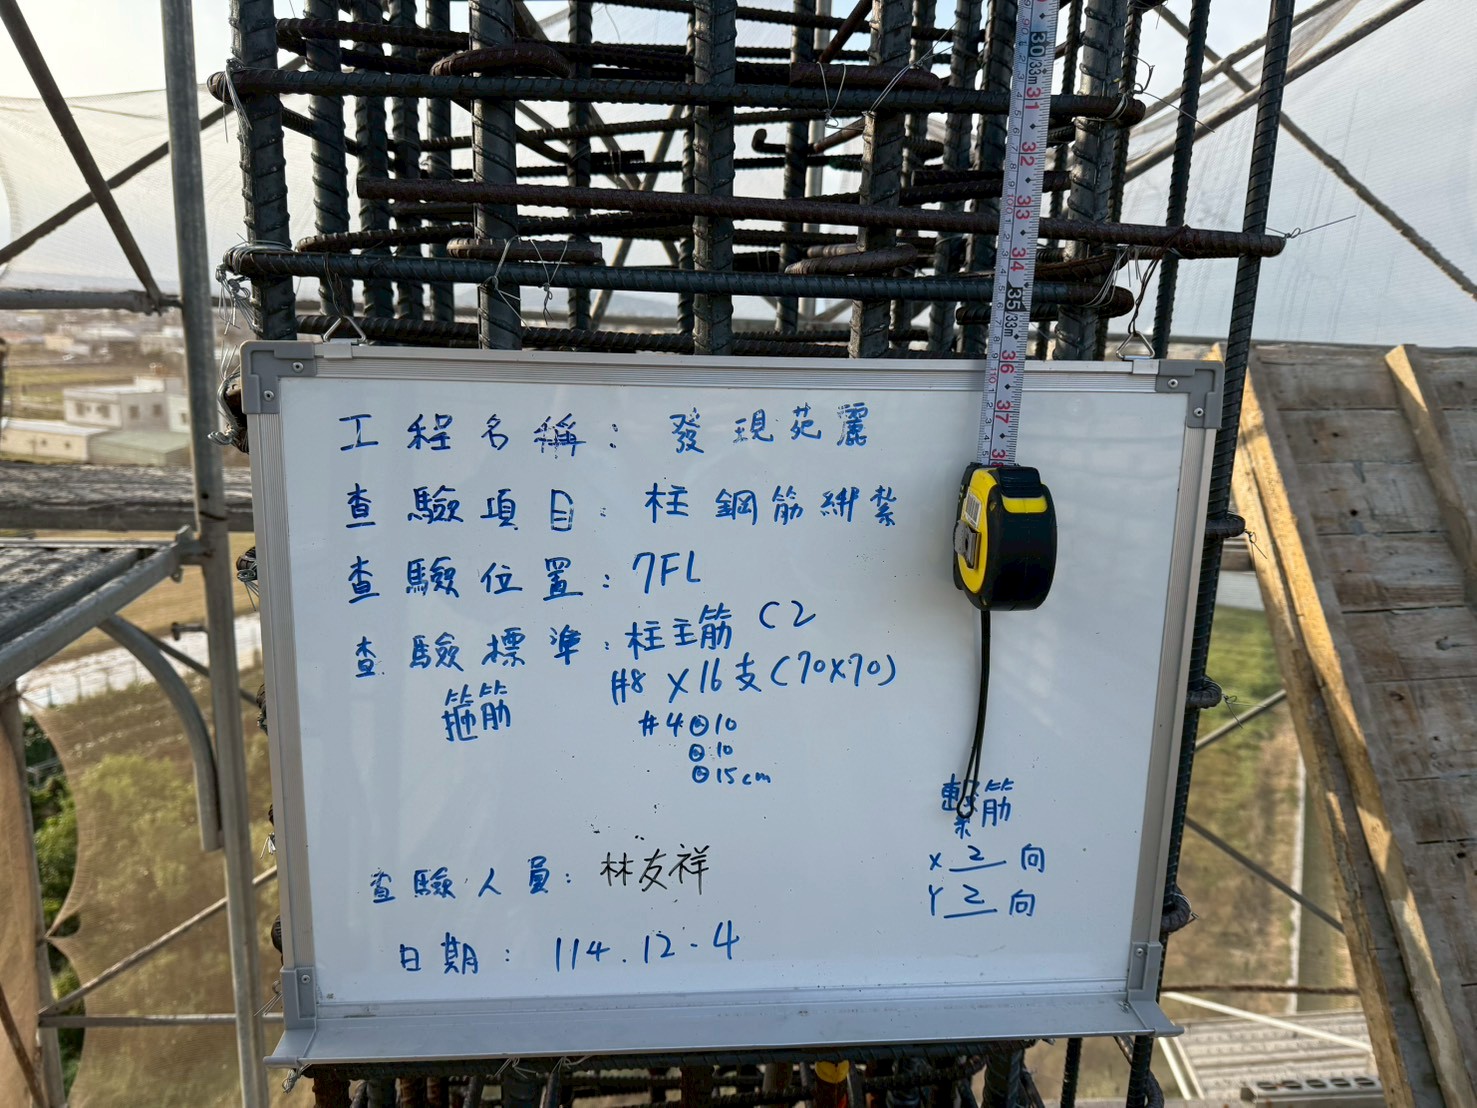 30
33m
31
32
33
34
35
33m
36
37
38
工程名稱：發現苑麗
查驗項目：柱鋼筋綁紮
查驗位置：7FL
查驗標準：柱主筋 C2
#8 X16支(70X70)
箍筋 #4@10
@10
@15cm
繫筋
X 2 向
Y 2 向
查驗人員：林友祥
日期：114.12.4